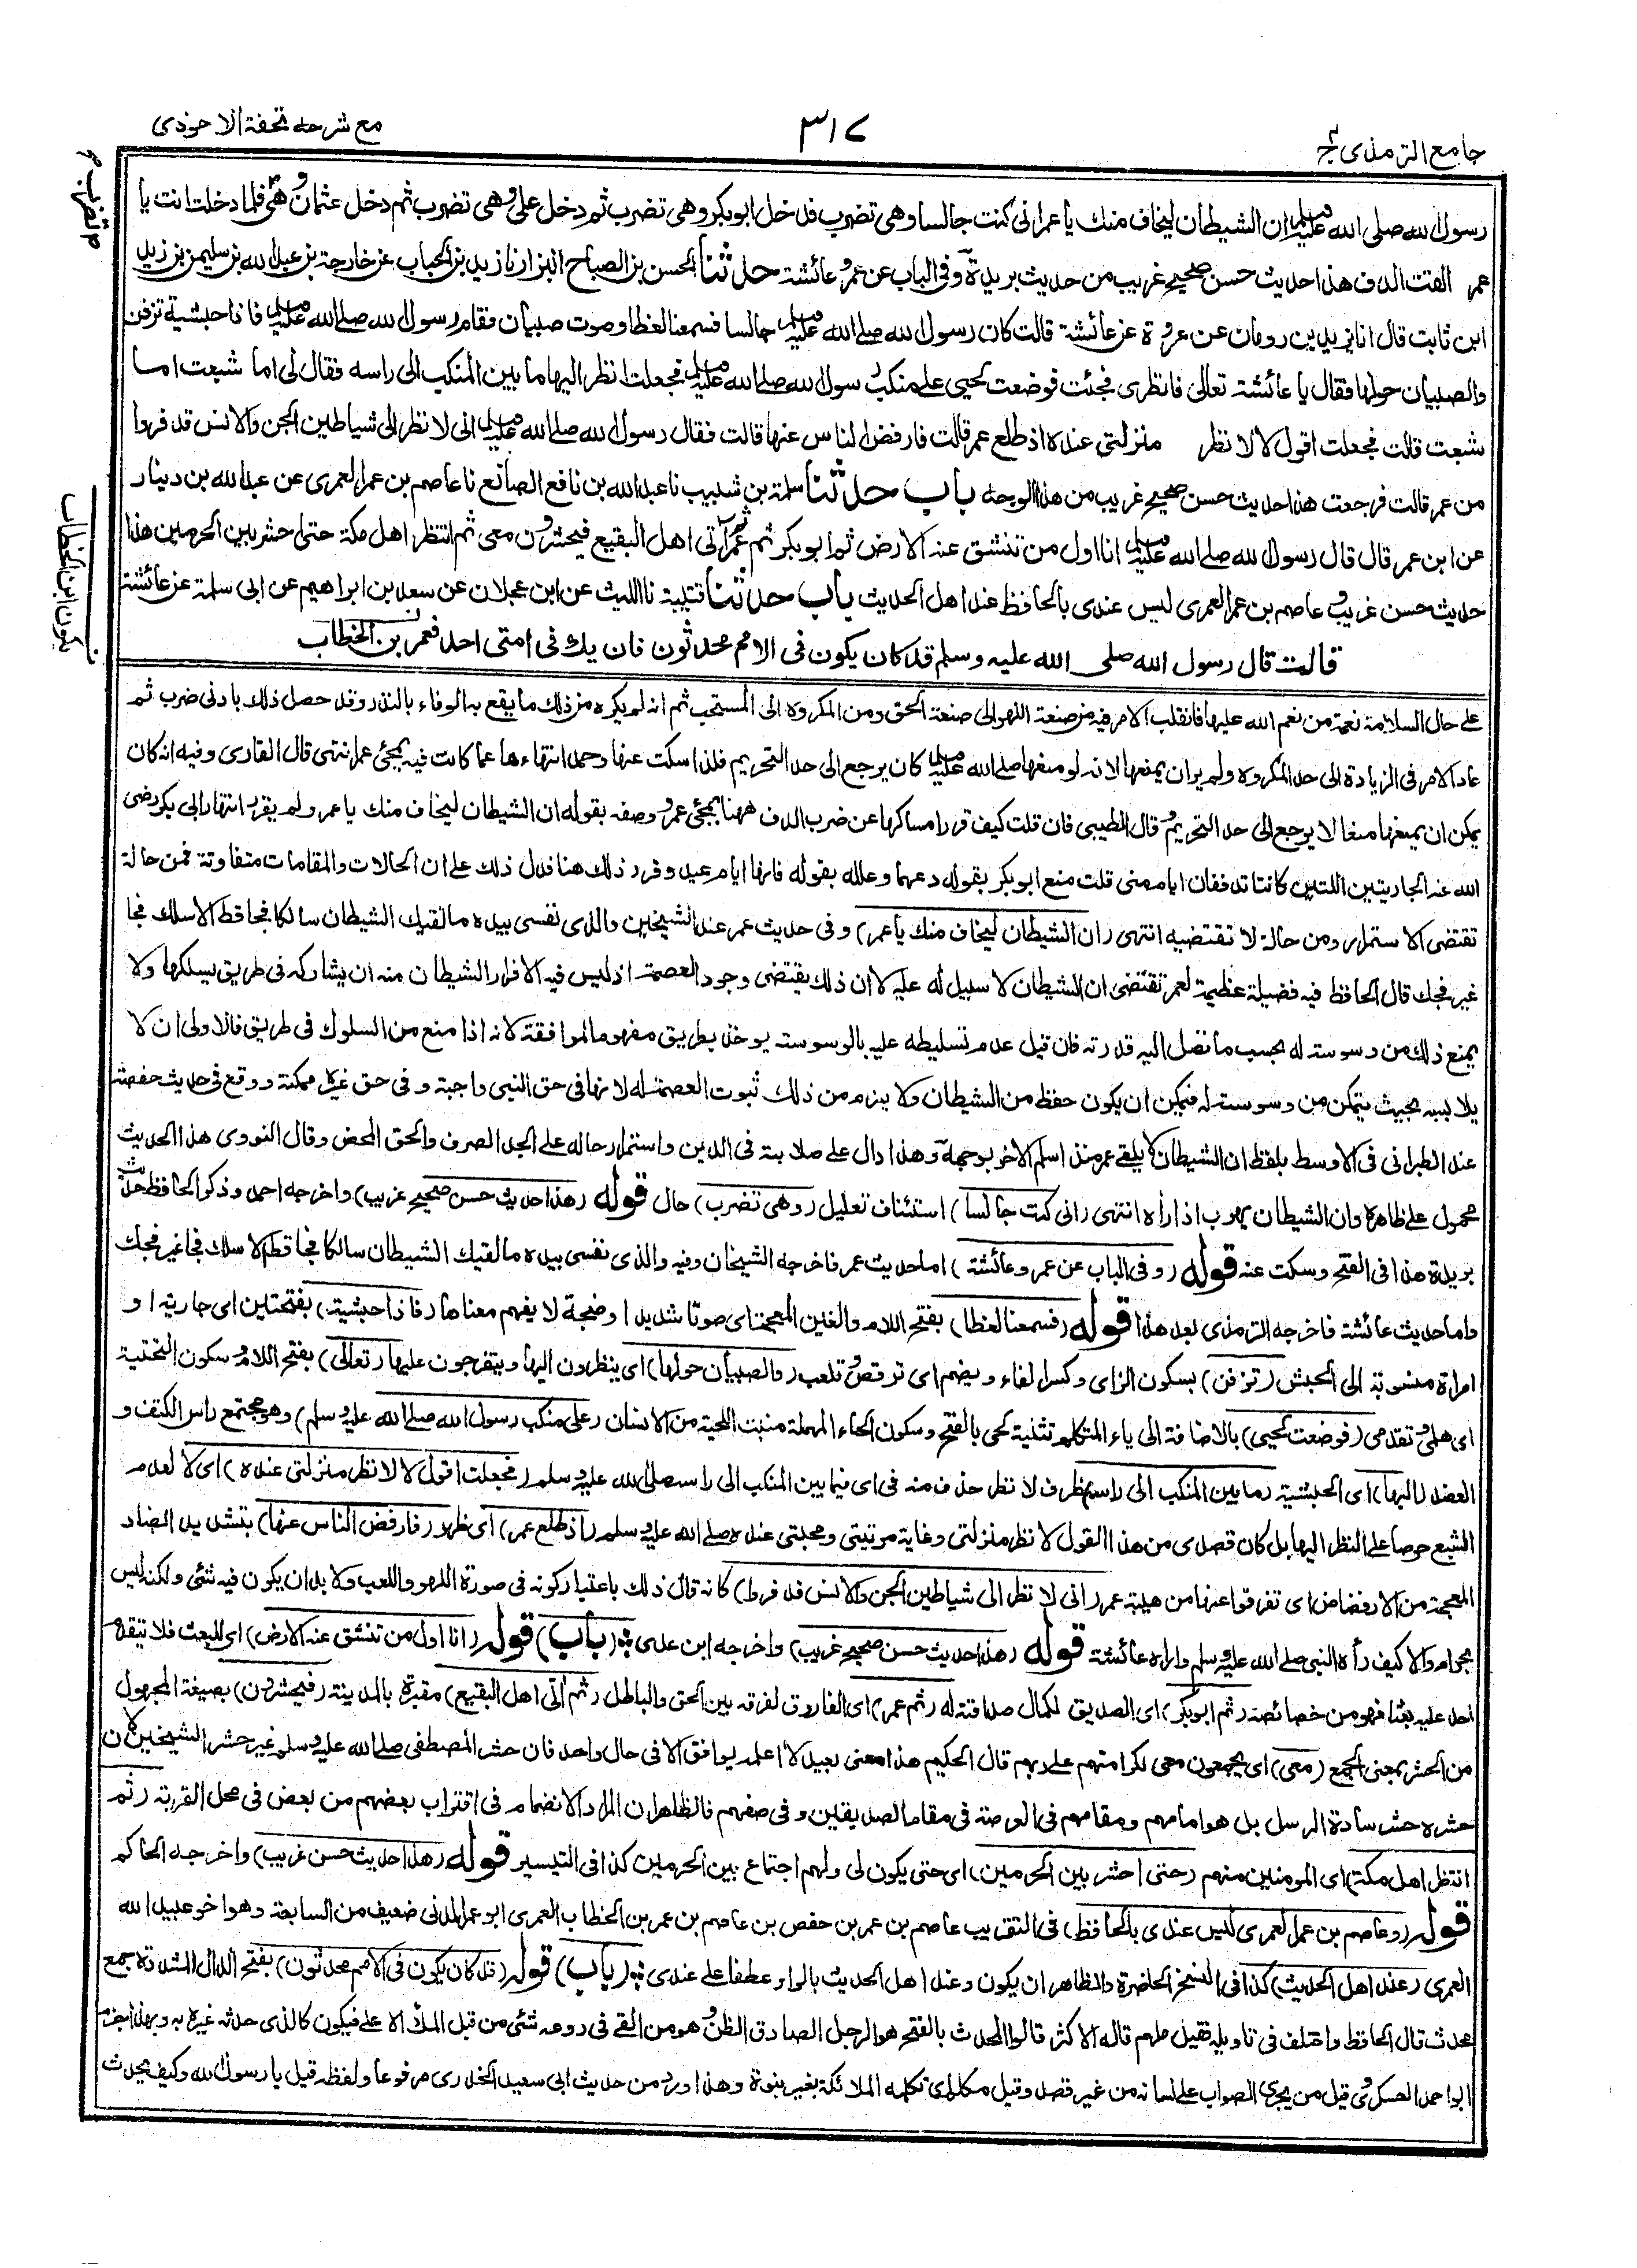 جامع الترمذی ج۴
۳۱۷
مع شرحه تحفة الاحوذی
رسول الله صلى الله عليه وسلم ان الشيطان ليخاف منك يا عمر انی كنت جالسا وهی تضرب فدخل ابوبكر وهی تضرب ثم دخل علی وهی تضرب ثم دخل عثمان وهی فلما دخلت انت يا
عمر القت الدف هذا حديث حسن صحيح غريب من حديث بريدة وفی الباب عن عمر وعائشة حدثنا الحسن بن الصباح البزار نا زيد بن الحباب عن خارجة بن عبد الله بن سليمن بن زيد
ابن ثابت قال انا يزيد بن رومان عن عروة عن عائشة قالت كان رسول الله صلى الله عليه وسلم جالسا فسمعنا لغطا وصوت صبيان فقام رسول الله صلى الله عليه وسلم فاذا حبشية تزفن
والصبيان حولها فقال يا عائشة تعالی فانظری فجئت فوضعت لحيی على منكب رسول الله صلى الله عليه وسلم فجعلت انظر اليها ما بين المنكب الى راسه فقال لی اما شبعت اما
شبعت قالت فجعلت اقول لا لانظر منزلتی عنده اذ طلع عمر قالت فارفض الناس عنها قالت فقال رسول الله صلى الله عليه وسلم انی لانظر الى شياطين الجن والانس قد فروا
من عمر قالت فرجعت هذا حديث حسن صحيح غريب من هذا الوجه باب حدثنا سلمة بن شبيب نا عبد الله بن نافع الصائغ نا عاصم بن عمر العمری عن عبد الله بن دينار
عن ابن عمر قال قال رسول الله صلى الله عليه وسلم انا اول من تنشق عنه الارض ثم ابوبكر ثم عمر ثم آتی اهل البقيع فيحشرون معی ثم انتظر اهل مكة حتى احشر بين الحرمين هذا
حديث حسن غريب و عاصم بن عمر العمری ليس عندی بالحافظ عند اهل الحديث باب حدثنا قتيبة نا الليث عن ابن عجلان عن سعد بن ابراهيم عن ابی سلمة عن عائشة
قالت قال رسول الله صلى الله عليه وسلم قد كان يكون فی الامم محدثون فان يك فی امتی احد فعمر بن الخطاب
يكون ابن الخطاب
على حال السلامة نعمة من نعم الله عليها فانقلب الامر فيه من صنعة اللهو الى صنعة الحق ومن المكروه الى المستحب ثم انه لم يكره من ذلك ما يقع به الوفاء بالنذر وقد حصل ذلك بادنی ضرب ثم
عاد الامر فی الزيادة الى حد المكروه ولم ير ان يمنعها لانه لو منعها صلى الله عليه وسلم كان يرجع الى حد التحريم فلذا سكت عنها وحمد انتهاءها عما كانت فيه بمجئ عمر انتهى قال القاری وفيه انه كان
يمكن ان يمنعها منعا لا يرجع الى حد التحريم و قال الطيبی فان قلت كيف قرر امساكها عن ضرب الدف ههنا بمجئ عمر و وصفه بقوله ان الشيطان ليخاف منك يا عمر ولم يقرر انتهار ابی بكر رضی
الله عنه الجاريتين اللتين كانتا تدففان ايام منى قلت منع ابوبكر بقوله دعهما وعلله بقوله فانها ايام عيد وقرر ذلك هنا فدل ذلك على ان الحالات والمقامات متفاوتة فمن حالة
تقتضی الاستمرار ومن حالة لا تقتضيه انتهى (ان الشيطان ليخاف منك يا عمر) وفی حديث عمر عند الشيخين والذی نفسی بيده ما لقيك الشيطان سالكا فجا قط الا سلك فجا
غير فجك قال الحافظ فيه فضيلة عظيمة لعمر تقتضی ان الشيطان لا سبيل له عليه لا ان ذلك يقتضی وجود العصمة اذ ليس فيه الا فرار الشيطان منه ان يشاركه فی طريق يسلكها ولا
يمنع ذلك من وسوسته له بحسب ما تصل اليه قدرته فان قيل عدم تسليطه عليه بالوسوسة يوخذ بطريق مفهوم الموافقة لانه اذا منع من السلوك فی طريق فالاولى ان لا
يلابسه بحيث يتمكن من وسوسته له فيمكن ان يكون حفظ من الشيطان ولا يلزم من ذلك ثبوت العصمة له لانها فی حق النبی واجبة وفی حق غيره ممكنة ووقع فی حديث حفصة
عند الطبرانی فی الاوسط بلفظ ان الشيطان لا يلقى عمر منذ اسلم الا خر بوجهه وهذا دال على صلابته فی الدين واستمرار حاله على الجد الصرف والحق المحض وقال النووی هذا الحديث
محمول على ظاهره وان الشيطان يهرب اذا رأه انتهى (انی كنت جالسا) استئناف تعليل (وهی تضرب) حال قوله (هذا حديث حسن صحيح غريب) واخرجه احمد وذكر الحافظ حديث
بريدة هذا فی الفتح وسكت عنه قوله (وفی الباب عن عمر وعائشة) اما حديث عمر فاخرجه الشيخان وفيه والذی نفسی بيده ما لقيك الشيطان سالكا فجا قط الا سلك فجا غير فجك
واما حديث عائشة فاخرجه الترمذی بعد هذا قوله (فسمعنا لغطا) بفتح اللام والغين المعجمة ای صوتا شديدا وضجة لا يفهم معناها (فاذا حبشية) بفتحتين ای جارية او
امراة منسوبة الى الحبش (تزفن) بسكون الزای وكسر الفاء ويضم ای ترقص و تلعب (والصبيان حولها) ای ينظرون اليها ويتفرجون عليها (تعالی) بفتح اللام و سكون التحتية
ای هلمی و تقدمی (فوضعت لحيی) بالاضافة الى ياء المتكلم تثنية لحی بالفتح وسكون الحاء المهملة منبت اللحية من الانسان (على منكب رسول الله صلى الله عليه وسلم) وهو مجتمع راس الكتف و
العضد (اليها) ای الحبشية (ما بين المنكب الى راسه) ظرف لانظر حذف منه فی ای فيما بين المنكب الى راسه صلى الله عليه وسلم (فجعلت اقول لا لانظر منزلتی عنده) ای لا لعدم
الشبع حرصا على النظر اليها بل كان قصدی من هذا القول لانظر منزلتی وغاية مرتبتی ومحبتی عنده صلى الله عليه وسلم (اذ طلع عمر) ای ظهر (فارفض الناس عنها) بتشديد الضاد
المعجمة من الارفضاض ای تفرقوا عنها من هيبة عمر (انی لانظر الى شياطين الجن والانس قد فروا) كانه قال ذلك باعتبار كونه فی صورة اللهو واللعب ولا بد ان يكون فيه شئ ولكنه ليس
بحرام والا كيف رأه النبی صلى الله عليه وسلم واراه عائشة قوله (هذا حديث حسن صحيح غريب) واخرجه ابن عدی (باب) قوله (انا اول من تنشق عنه الارض) ای للبعث فلا يتقدم
احد عليه بعثا فهو من خصائصه (ثم ابوبكر) ای الصديق لكمال صداقته له (ثم عمر) ای الفاروق لفرقه بين الحق والباطل (ثم آتی اهل البقيع) مقبرة بالمدينة (فيحشرون) بصيغة المجهول
من الحشر بمعنى الجمع (معی) ای يجمعون معی لكرامتهم على ربهم قال الحكيم هذا معنى بعيد لا اعلمه يوافق الا فی حال واحد فان حشر المصطفى صلى الله عليه وسلم غير حشر الشيخين لان
حشره حشر سادة الرسل بل هو امامهم ومقامهم فی العرصة فی مقام الصديقين وفی صفهم فالظاهر ان المراد الانضمام فی اقتراب بعضهم من بعض فی محل القربة (ثم
انتظر اهل مكة) ای المومنين منهم (حتى احشر بين الحرمين) ای حتى يكون لی ولهم اجتماع بين الحرمين كذا فی التيسير قوله (هذا حديث حسن غريب) واخرجه الحاكم
قوله (وعاصم بن عمر العمری ليس عندی بالحافظ) فی التقريب عاصم بن عمر بن حفص بن عاصم بن عمر بن الخطاب العمری ابو عمر المدنی ضعيف من السابعة وهو اخو عبيد الله
العمری (عند اهل الحديث) كذا فی النسخ الحاضرة والظاهر ان يكون وعند اهل الحديث بالواو عطفا على عندی (باب) قوله (قد كان يكون فی الامم محدثون) بفتح الدال المشددة جمع
محدث قال الحافظ واختلف فی تاويله فقيل ملهم قاله الاكثر قالوا المحدث بالفتح هو الرجل الصادق الظن و هو من القی فی روعه شئ من قبل الملأ الاعلى فيكون كالذی حدثه غيره به وبهذا جزم
ابو احمد العسكری و قيل من يجری الصواب على لسانه من غير قصد وقيل مكلم ای تكلمه الملائكة بغير نبوة وهذا ورد من حديث ابی سعيد الخدری مرفوعا ولفظه قيل يا رسول الله وكيف يحدث